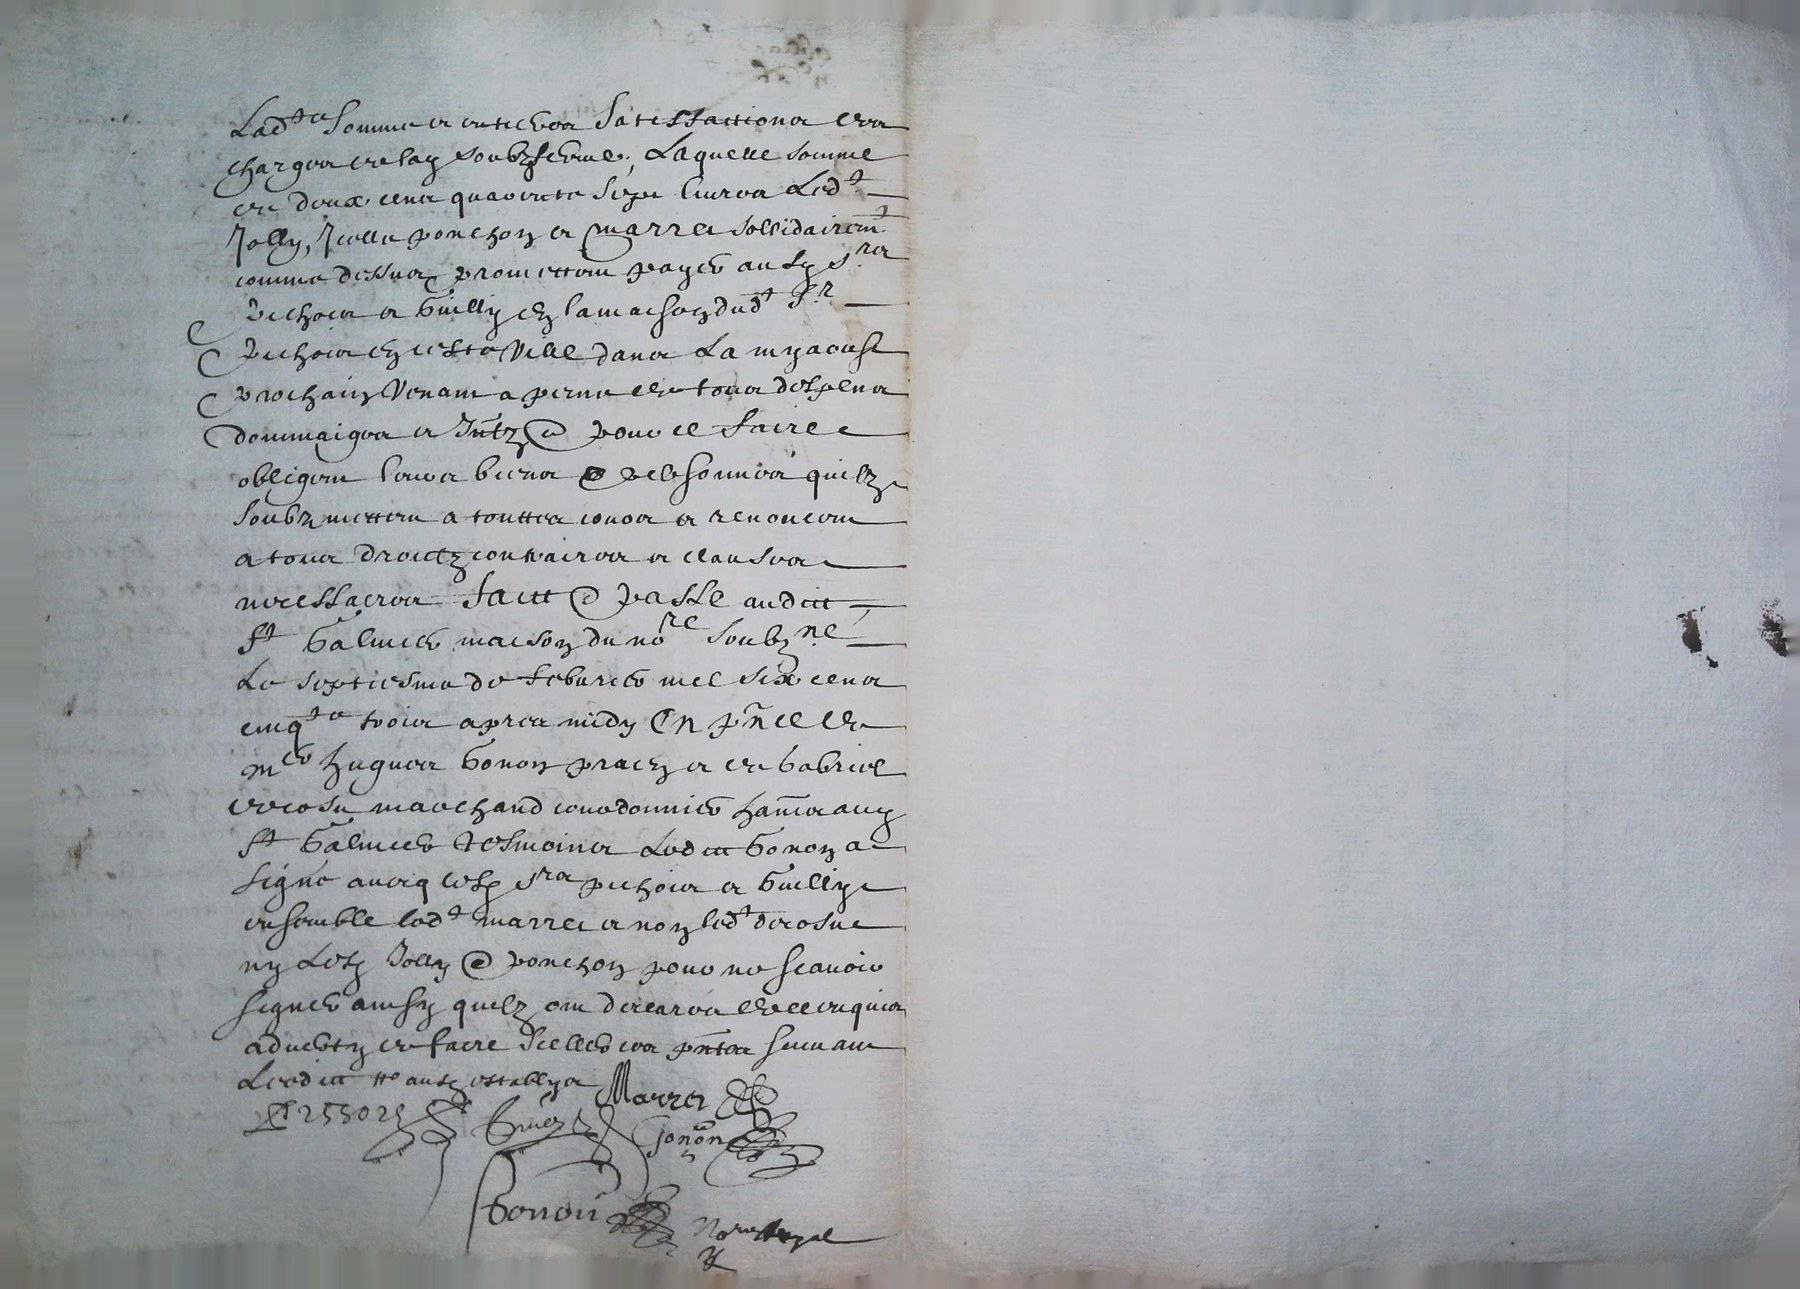 Lad.te somme et entiere satisffactions des
charges de lad. soubzferme, Laquelle somme
de deux cens quarente seize livres Lesd.t
Jolly, Ponchon et Marret sollidairem.t
comme dessus promettent payer ausd. s.res
Pichois et Guilly en la maison dud.t s.r
Pichois en ceste Ville dans La my aoust
prochain Venant a peine de tous despens
dommaiges et Intz & pour ce faire
obligent leurs biens & personnes quilz
soubzmettent a touttes cours et renoncent
a tous droictz contraires et clauses
necessaires faict & passé audict
S.t Galmier maison du no.re soubz.né
Le septiesme de febvrier mil six cens
cinq.te trois apres midy En p̃nce de
m.e hugues Gonon praen et de Gabriel
decosne marchand courdonnier hãns aud.
S.t Galmier tesmoings Ledict Gonon a
signé avecq lesd. s.res pichois et Guilly
ensemble led.t marret et non led.t decosne
ny Lesd. Jolly & ponchon pour ne scavoir
signer ainsy quilz ont declaré de ce enquis
adverty de faire sceller ces p̃ntes suivant
Leedict
Marret
Gonon
Gonon
No.re Royal